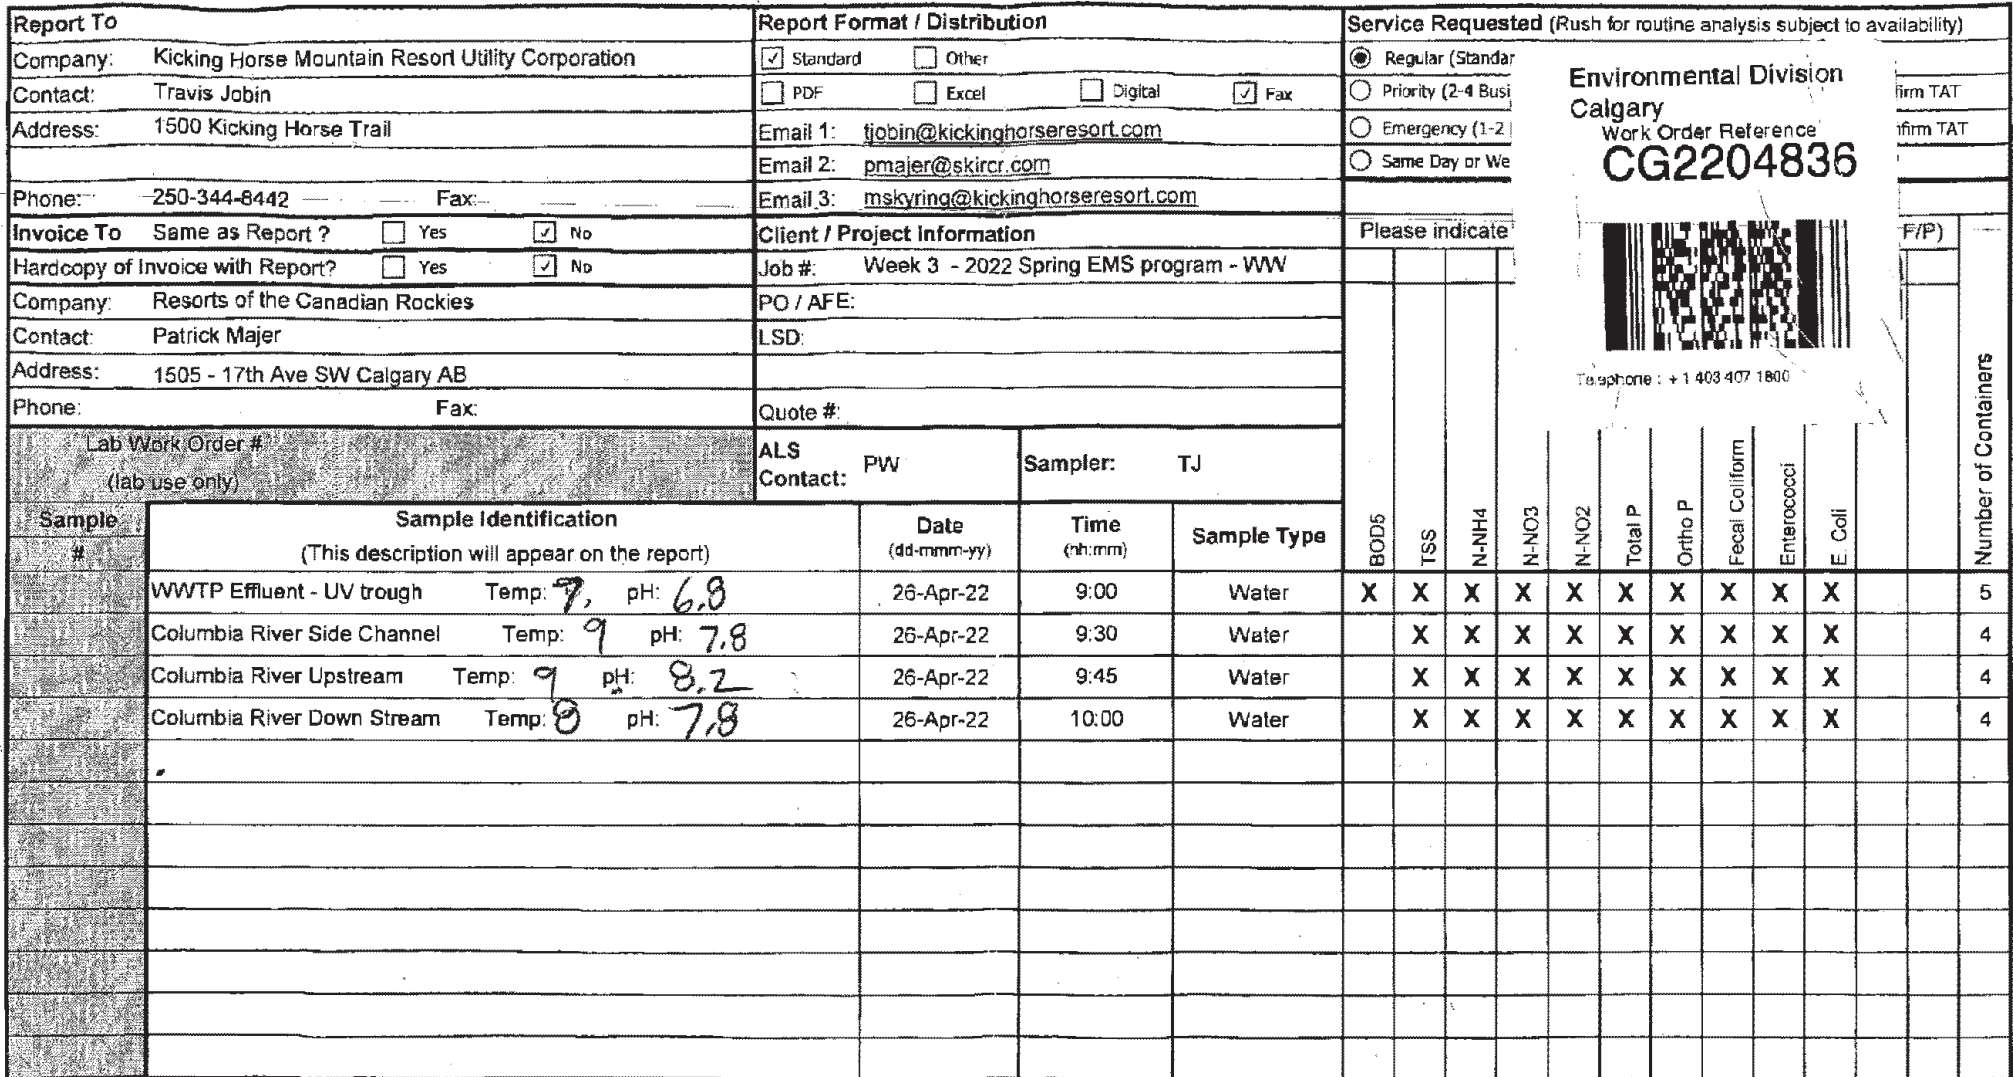 Report To
Company: Kicking Horse Mountain Resort Utility Corporation
Contact: Travis Jobin
Address: 1500 Kicking Horse Trail
Phone: 250-344-8442 Fax:
Invoice To Same as Report ? Yes No
Hardcopy of Invoice with Report? Yes No
Company: Resorts of the Canadian Rockies
Contact: Patrick Majer
Address: 1505 - 17th Ave SW Calgary AB
Phone: Fax:
Lab Work Order #
(lab use only)
Report Format / Distribution
Standard Other
PDF Excel Digital Fax
Email 1: tjobin@kickinghorseresort.com
Email 2: pmajer@skircr.com
Email 3: mskyring@kickinghorseresort.com
Client / Project Information
Job #: Week 3 - 2022 Spring EMS program - WW
PO / AFE:
LSD:
Quote #:
ALS Contact: PW Sampler: TJ
Service Requested (Rush for routine analysis subject to availability)
Regular (Standar
Priority (2-4 Busi firm TAT
Emergency (1-2 nfirm TAT
Same Day or We
Please indicate F/P)
Environmental Division
Calgary
Work Order Reference
CG2204836
Telephone : + 1 403 407 1800
Sample # Sample Identification Date Time Sample Type BOD5 TSS N-NH4 N-NO3 N-NO2 Total P Ortho P Fecal Coliform Enterococci E. Coli Number of Containers
(This description will appear on the report) (dd-mmm-yy) (hh:mm)
WWTP Effluent - UV trough Temp: 7, pH: 6.8 26-Apr-22 9:00 Water X X X X X X X X X X 5
Columbia River Side Channel Temp: 9 pH: 7.8 26-Apr-22 9:30 Water X X X X X X X X X 4
Columbia River Upstream Temp: 9 pH: 8.2 26-Apr-22 9:45 Water X X X X X X X X X 4
Columbia River Down Stream Temp: 8 pH: 7.8 26-Apr-22 10:00 Water X X X X X X X X X 4